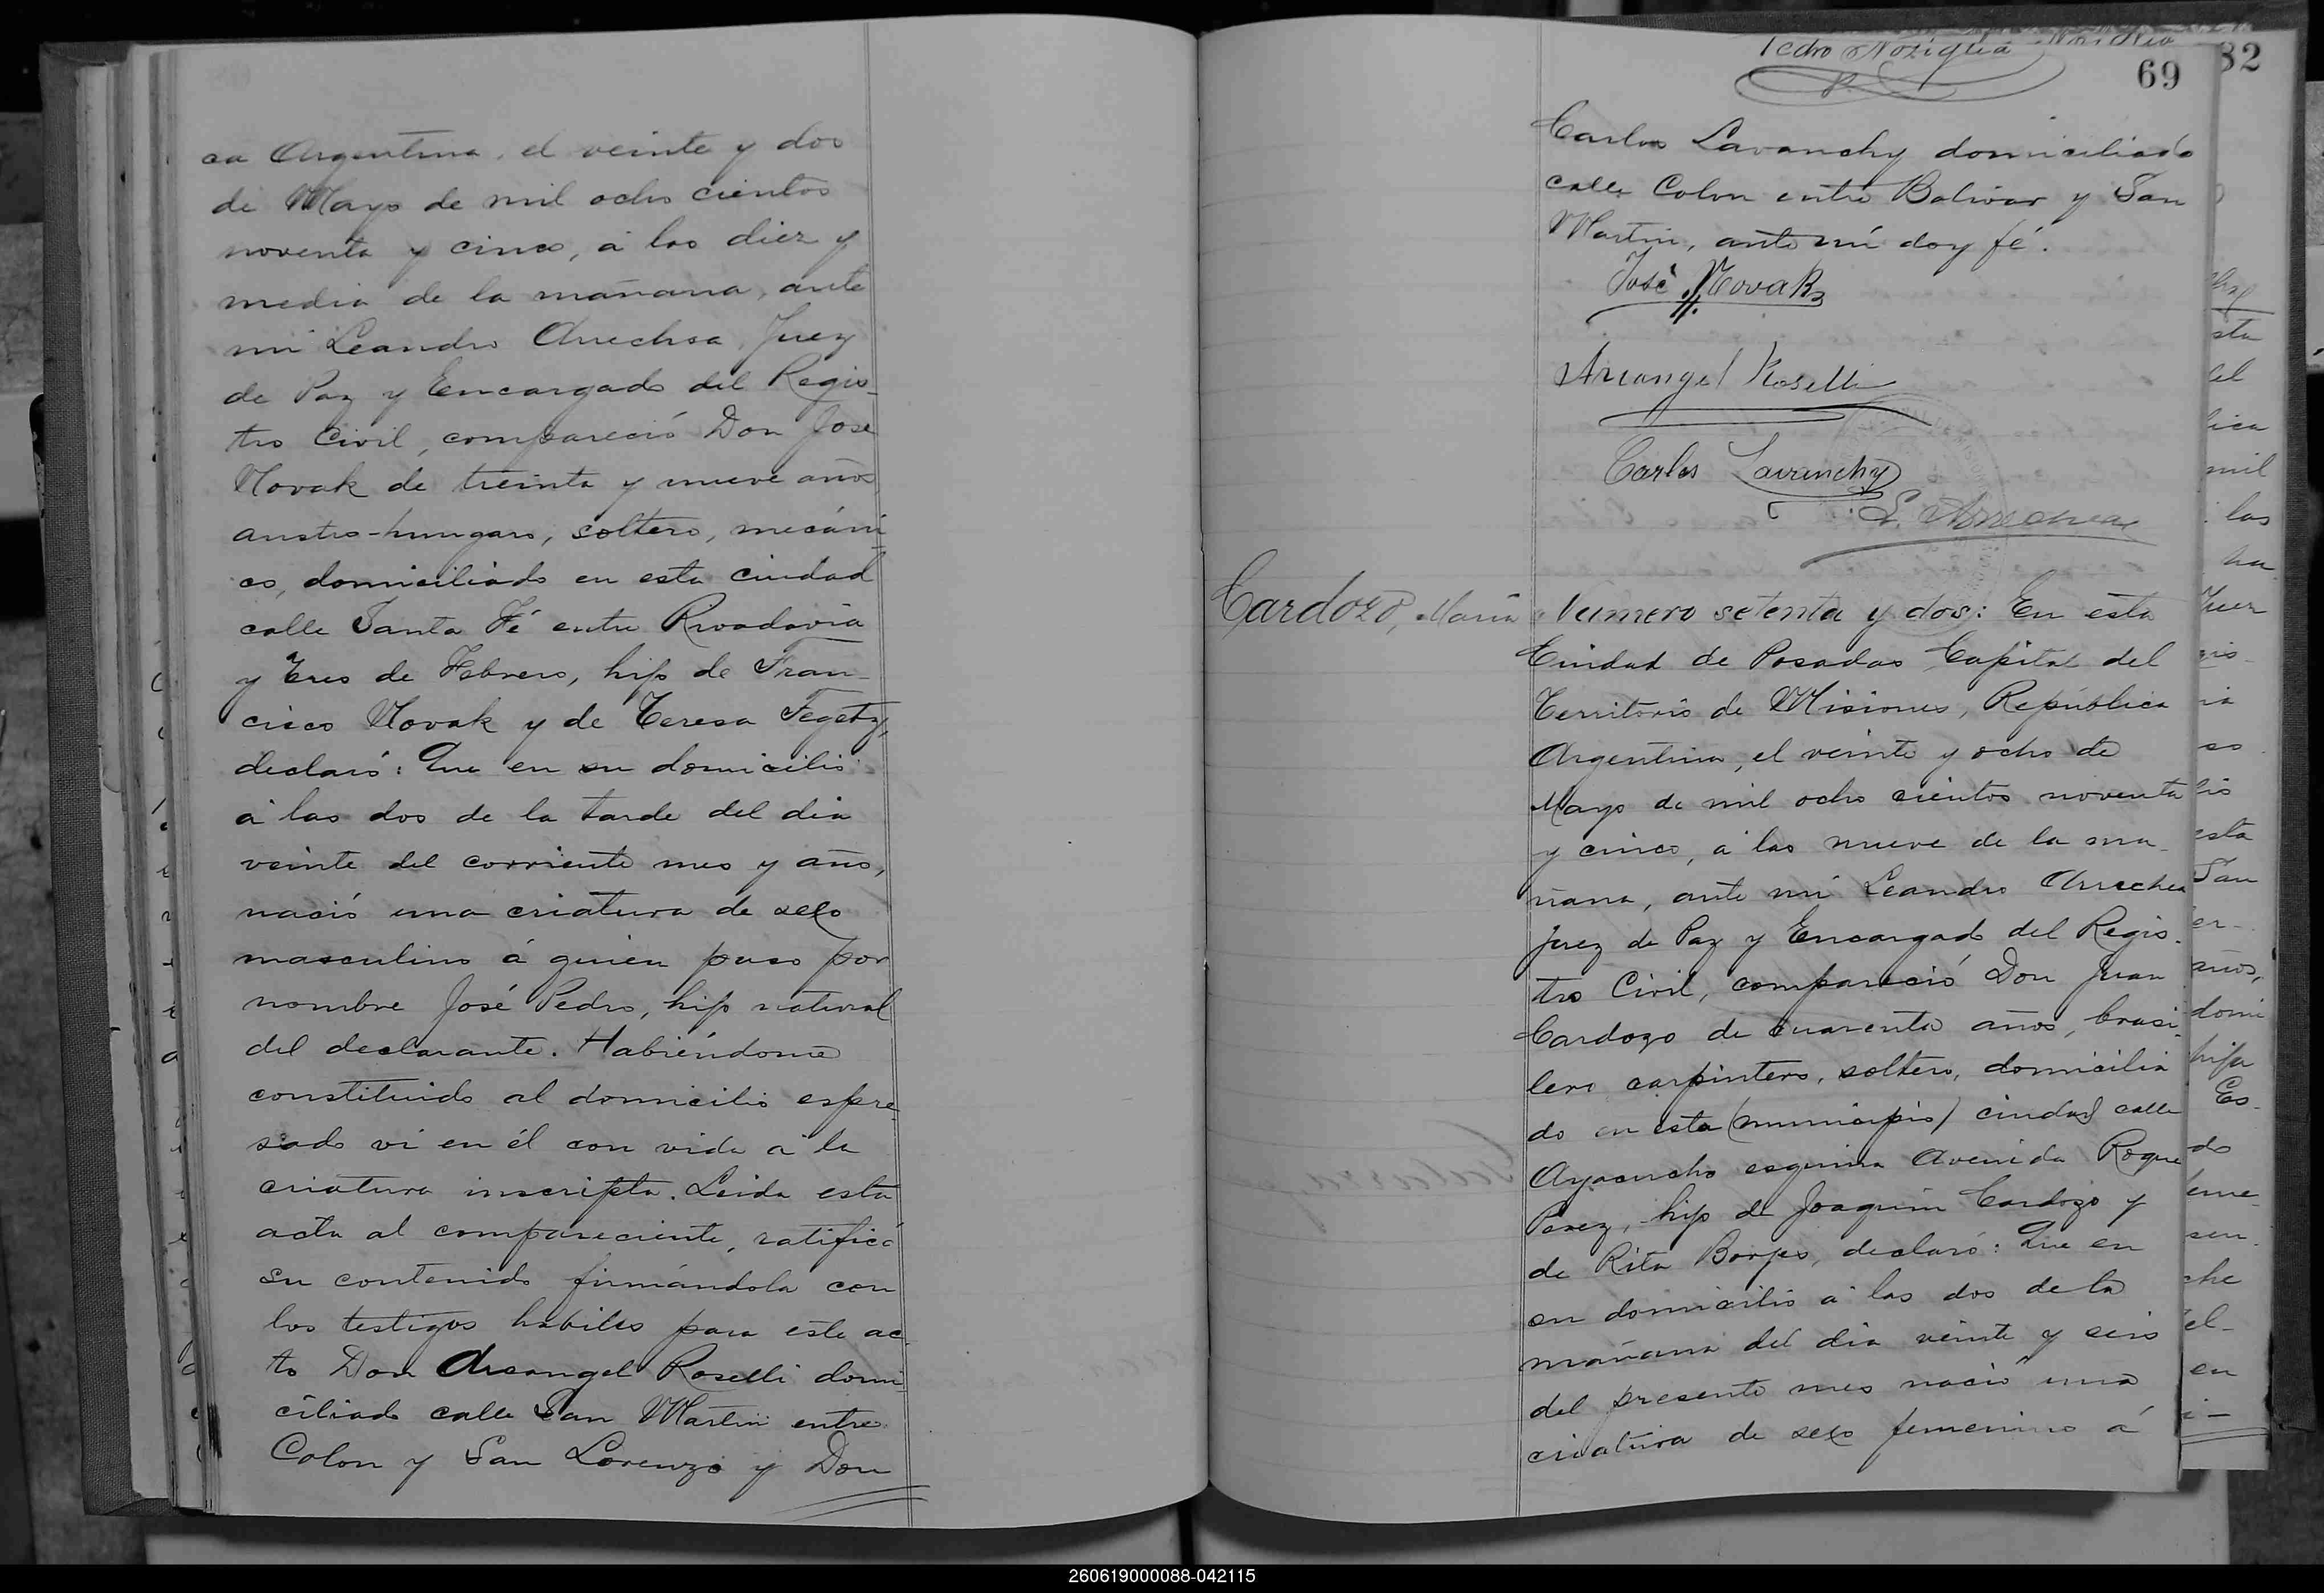 ca Argentina, el veinte y dos
de Mayo de mil ocho cientos
noventa y cinco, á las diez y
media de la mañana, ante
mi Leandro Arrechea, Juez
de Paz y Encargado del Regis-
tro Civil, compareció Don José
Novak de treinta y nueve años
austro-hungaro, soltero, mecáni-
co, domiciliado en esta ciudad
calle Santa Fé entre Rivadavia
y Tres de Febrero, hijo de Fran-
cisco Novak y de Teresa Fegetz,
declaró: Que en su domicilio
á las dos de la tarde del dia
veinte del corriente mes y año,
nació una criatura de sexo
masculino á quien puso por
nombre José Pedro, hijo natural
del declarante. Habiéndome
constituido al domicilio espre-
sado vi en él con vida á la
criatura inscripta. Leida esta
acta al compareciente, ratificó
su contenido firmándola con
los testigos habiles para este ac-
to Don Arcangel Roselli domi-
ciliado calle San Martin entre
Colon y San Lorenzo y Don
Pedro Noziglia
69
82
Carlos Lavanchy domiciliado
calle Colon entre Bolivar y San
Martin, ante mí doy fé.
José Novak
Arcangel Roselli
Carlos Lavanchy
L. Arrechea
Cardozo, Maria
Numero setenta y dos: En esta
Ciudad de Posadas Capital del
Territorio de Misiones, República
Argentina, el veinte y ocho de
Mayo de mil ocho cientos noventa
y cinco, á las nueve de la ma-
ñana, ante mi Leandro Arrechea
Juez de Paz y Encargado del Regis-
tro Civil, compareció Don Juan
Cardozo de cuarenta años, brasi-
lero carpintero, soltero, domicilia
do en esta (municipio) ciudad calle
Ayacucho esquina Avenida Roque
Perez, hijo de Joaquin Cardozo y
de Rita Borges, declaró: Que en
su domicilio á las dos de la
mañana del dia veinte y seis
del presente mes nació una
criatura de sexo femenino á
260619000088-042115